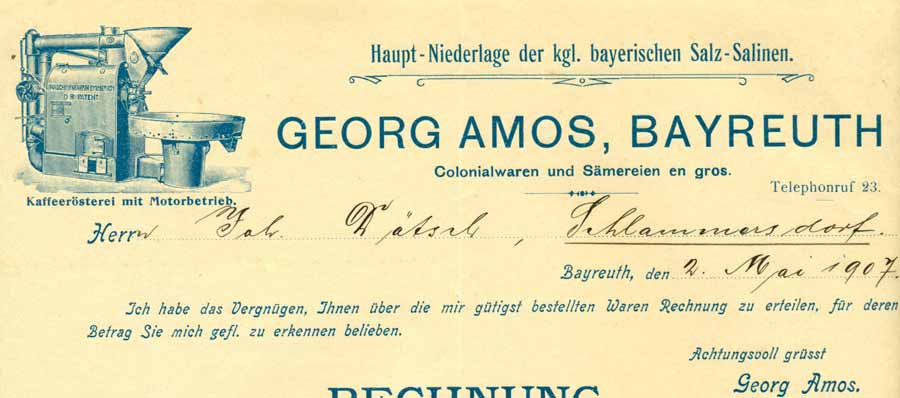 Haupt-Niederlage der kgl. bayerischen Salz-Salinen.
GEORG AMOS, BAYREUTH
Colonialwaren und Sämereien en gros.
Telephonruf 23.
MASCHINENFABRIK EMMERICH
D.R. PATENT
Kaffeerösterei mit Motorbetrieb.
Herrn Joh. Dötsch, Schlammersdorf.
Bayreuth, den 2. Mai 1907.
Ich habe das Vergnügen, Ihnen über die mir gütigst bestellten Waren Rechnung zu erteilen, für deren
Betrag Sie mich gefl. zu erkennen belieben.
Achtungsvoll grüsst
Georg Amos.
RECHNUNG